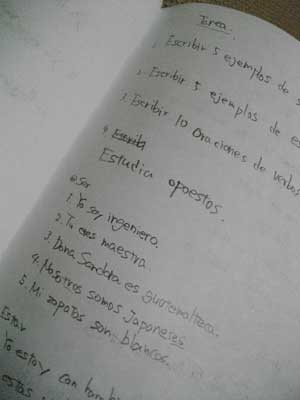 Tarea.
1. Escribir 5 ejemplos de s
2. Escribir 5 ejemplos de es
3. Escribir 10 Oraciones de verbos
4. Escribi
Estudia opoestos.
Ser
1. Yo soy ingeniero.
2. Tu eres maestra.
3. Dona Sandara es guatemalteca.
4. Nosotros somos Japoneses
5. Mi zapatos son blancos.
Estar
Yo estoy con hambre
estas